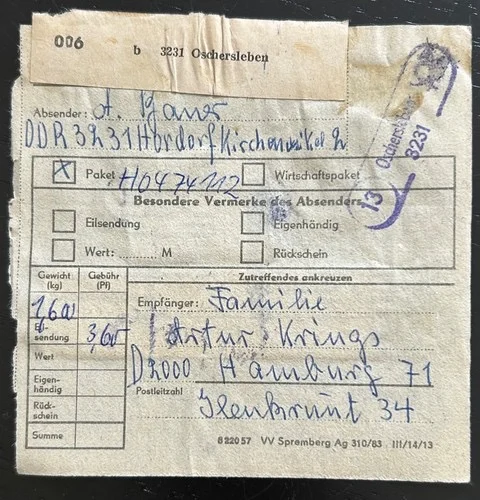 006 b 3231 Oschersleben
Absender: A.
DDR 3231 Hordorf
X Paket H0474112 Wirtschaftspaket
Besondere Vermerke des Absenders
Eilsendung Eigenhändig
Wert: ......... M Rückschein
Oschersleben
3231
13
Gewicht (kg) Gebühr (Pf) Zutreffendes ankreuzen
1,600
Eilsendung 3,60
Wert
Eigenhändig
Rückschein
Summe
Empfänger: Familie
Artur Krings
D2000 Hamburg 71
Postleitzahl
Ilenkruut 34
822057 VV Spremberg Ag 310/83 III/14/13